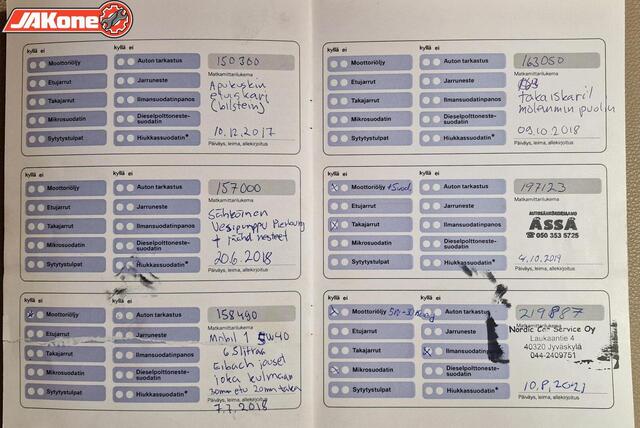 JAKone
kyllä ei
kyllä ei
Moottoriöljy
Auton tarkastus
150300
Matkamittarilukema
Etujarrut
Jarruneste
Apukuskin
Takajarrut
Ilmansuodatinpanos
etuiskari
Mikrosuodatin
Dieselpolttoneste-
suodatin
(bilstein)
Sytytystulpat
Hiukkassuodatin*
10.12.2017
Päiväys, leima, allekirjoitus
kyllä ei
kyllä ei
Moottoriöljy
Auton tarkastus
157000
Matkamittarilukema
Etujarrut
Jarruneste
Sähköinen
Takajarrut
Ilmansuodatinpanos
Vesipumppu Pierburg
Mikrosuodatin
Dieselpolttoneste-
suodatin
+ jäähd nesteet
Sytytystulpat
Hiukkassuodatin*
20.6.2018
Päiväys, leima, allekirjoitus
kyllä ei
Moottoriöljy
Auton tarkastus
158490
Matkamittarilukema
Etujarrut
Jarruneste
Mobil 1 5W40
Takajarrut
Ilmansuodatinpanos
6.5 litraa
Mikrosuodatin
Dieselpolttoneste-
suodatin
Eibach jouset
joka kulmaan
Sytytystulpat
Hiukkassuodatin*
30mm etu 20mm taka
Päiväys, leima, allekirjoitus
7.7.2018
kyllä ei
kyllä ei
Moottoriöljy
Auton tarkastus
163050
Matkamittarilukema
Etujarrut
Jarruneste
Takajarrut
Ilmansuodatinpanos
takaiskarit
Mikrosuodatin
Dieselpolttoneste-
suodatin
molemmin puolin
Sytytystulpat
Hiukkassuodatin*
09.10.2018
Päiväys, leima, allekirjoitus
kyllä ei
kyllä ei
Moottoriöljy
Auton tarkastus
197123
Matkamittarilukema
Etujarrut
Jarruneste
AUTOSÄHKÖKORJAAMO
Takajarrut
Ilmansuodatinpanos
ÄSSÄ
☎ 050 353 5725
Mikrosuodatin
Dieselpolttoneste-
suodatin
Sytytystulpat
Hiukkassuodatin*
4.10.2019
Päiväys, leima, allekirjoitus
kyllä ei
Moottoriöljy
Auton tarkastus
219887
Etujarrut
Jarruneste
Nordic Car Service Oy
Laukaantie 4
Takajarrut
Ilmansuodatinpanos
40320 Jyväskylä
044-2409751
Mikrosuodatin
Dieselpolttoneste-
suodatin
Sytytystulpat
Hiukkassuodatin*
10.8.2021
Päiväys, leima, allekirjoitus